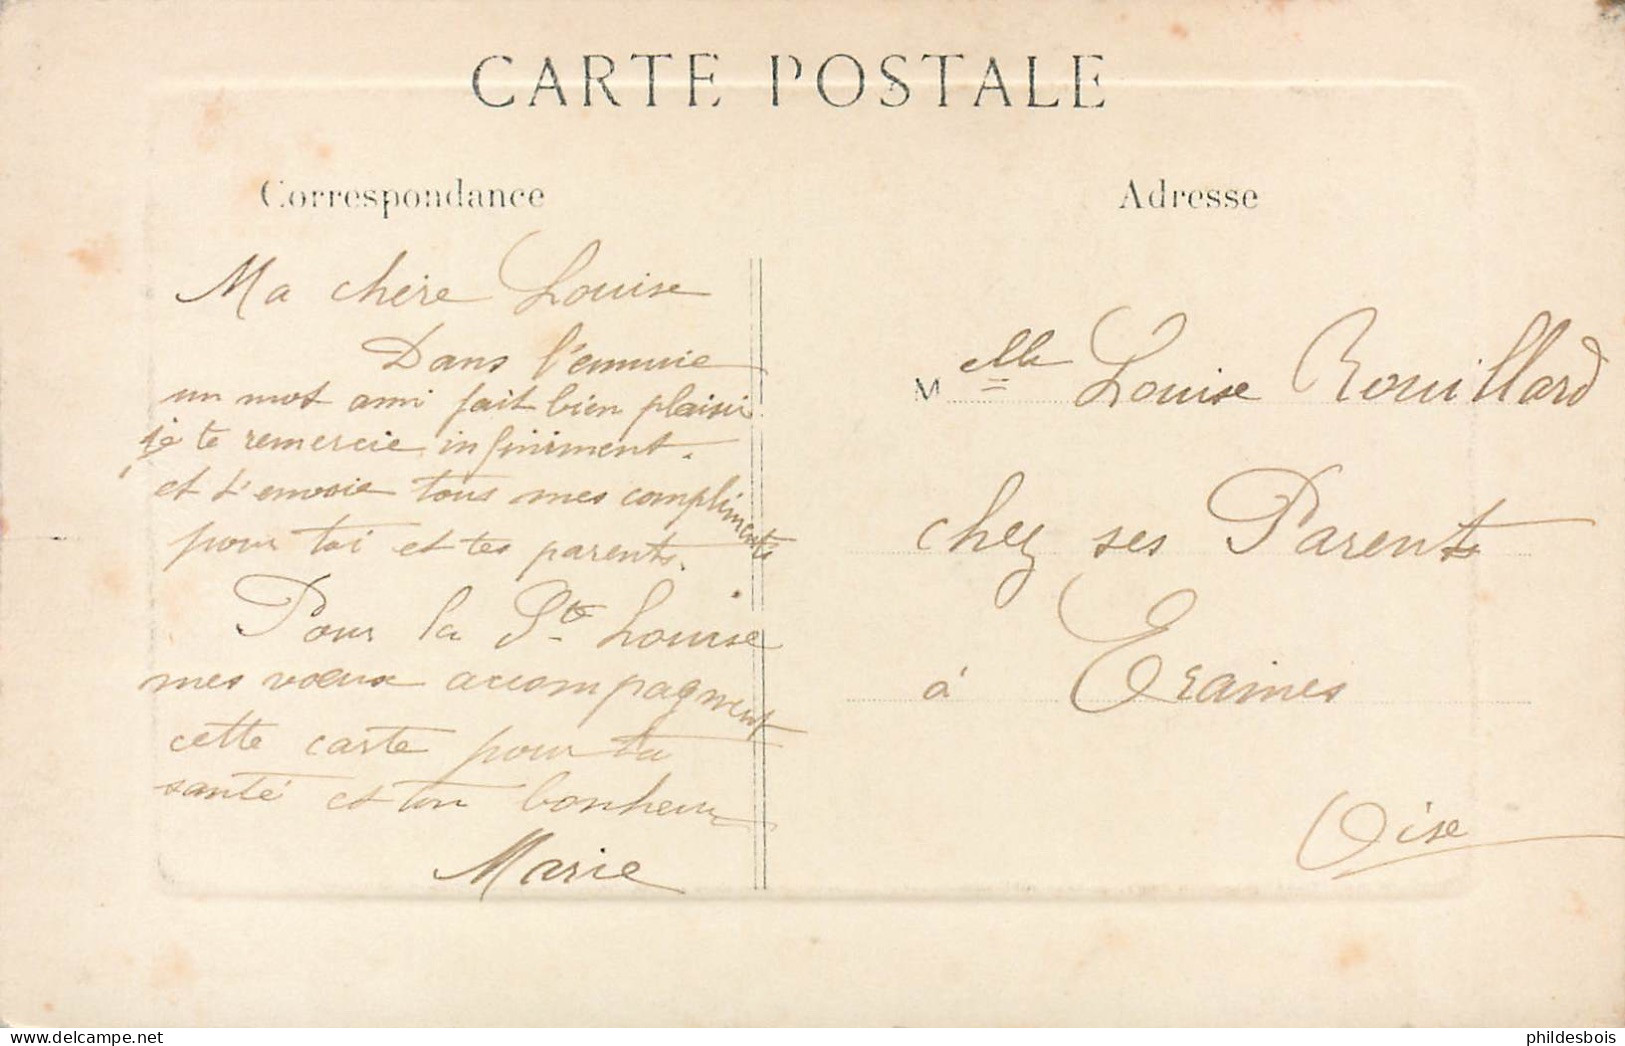 CARTE POSTALE
Correspondance
Ma chère Louise
Dans l'ennuie
un mot ami fait bien plaisir
je te remercie infiniment.
et t'envoie tous mes compliments
pour toi et tes parents.
Pour la Ste Louise
mes vœux accompagnent
cette carte pour ta
santé et ton bonheur
Marie
Adresse
Melle Louise Rouillard
chez ses Parents
à Eraines
Oise
delcampe.net
phildesbois